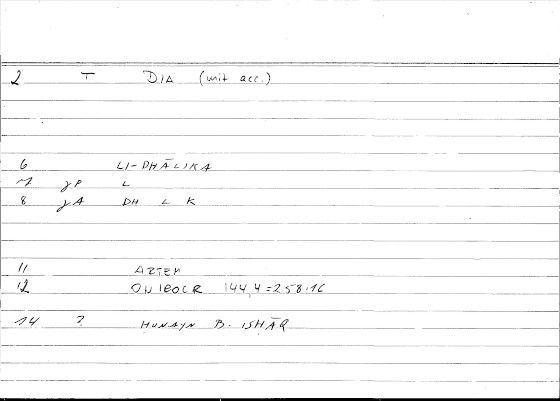 2 T DIA (mit acc.)
6 LI-DHĀLIKA
7 γP L
8 γA DH L K
11 ARTEM
12 144,4=258,16
14 ? HUNAYN B. ISHĀQ